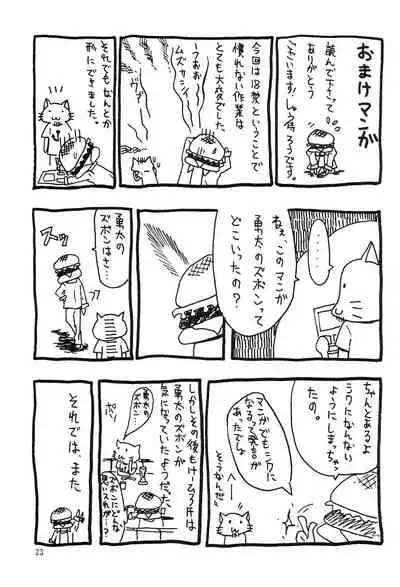 おまけマンが
読んで下さって
ありがとう
ございます!しょう待ろうです。
今回は18禁ということで
慣れない作業は
とても大変でした。
うおお
ムズカシイ
それでもなんとか
形にできました。
……
ねぇ、このマンガ
勇太のズボンって
どこいったの?
勇太の
ズボンはさ…
スッ
ちゃんとあるよ
シワになんない
ようにしまっちゃっ
たの。
マンガでもシワに
なるって発言が
あったでしょ
そうなんだ
しかしその後もけーむろ氏は
勇太のズボンが
気になっていたようだった。
勇太の
ズボン…
ポソ
ズボンにどんな
思い入れが…?
それでは、また
23